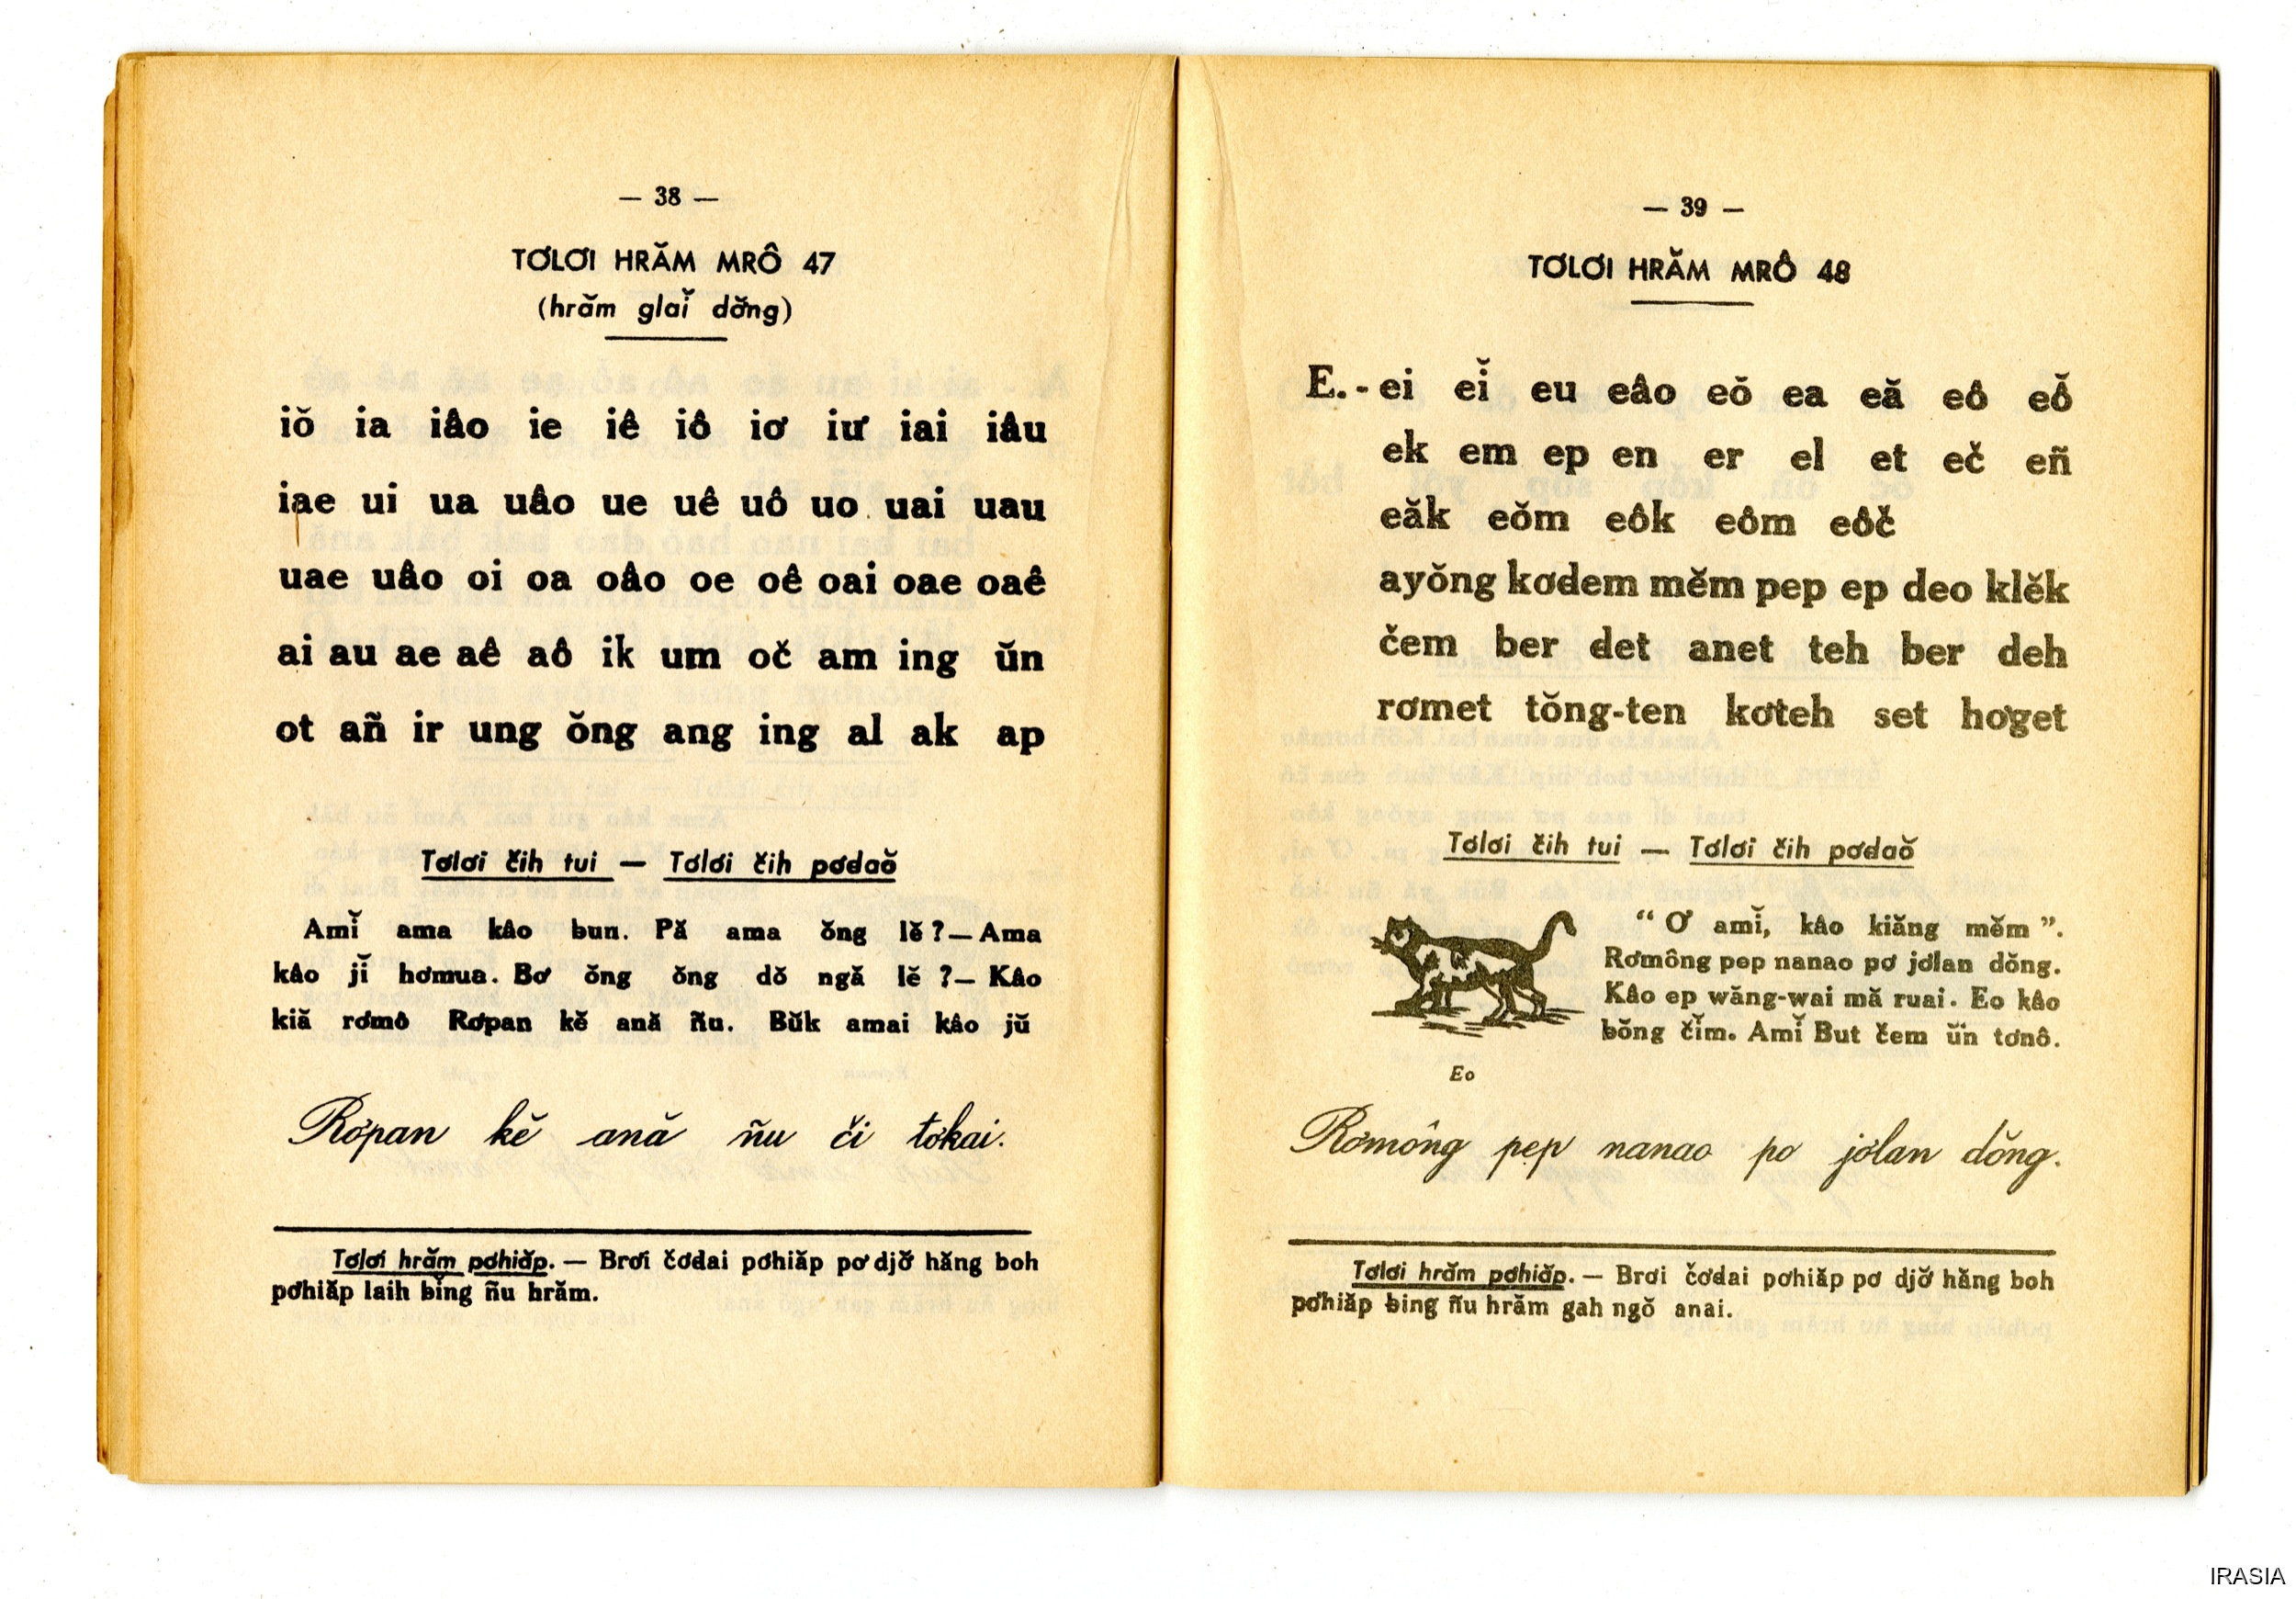 — 38 —
TƠLƠI HRĂM MRÔ 47
(hrăm glaĭ dơ̆ng)
iŏ ia iâo ie iê iô iơ iư iai iâu
iae ui ua uâo ue uê uô uo uai uau
uae uâo oi oa oâo oe oê oai oae oaê
ai au ae aê aô ik um oč am ing ŭn
ot añ ir ung ŏng ang ing al ak ap
Tơlơi čih tui — Tơlơi čih pơdaŏ
Amĭ ama kâo bun. Pă ama ŏng lĕ ? — Ama
kâo jĭ hơmua. Bơ ŏng ŏng dŏ ngă lĕ ? — Kâo
kiă rơmô Rơpan kĕ ană ñu. Bŭk amai kâo jŭ
Rơpan kĕ ană ñu či tơkai.
Tơlơi hrăm pơhiăp. — Brơi čơdai pơhiăp pơ djơ̆ hăng boh
pơhiăp laih ƀing ñu hrăm.
— 39 —
TƠLƠI HRĂM MRÔ 48
E. - ei eĭ eu eâo eŏ ea eă eô eô̆
ek em ep en er el et eč eñ
eăk eŏm eôk eôm eôč
ayŏng kơdem mĕm pep ep deo klĕk
čem ber det anet teh ber deh
rơmet tŏng-ten kơteh set hơget
Tơlơi čih tui — Tơlơi čih pơdaŏ
“ Ơ amĭ, kâo kiăng mĕm ”.
Rơmông pep nanao pơ jơlan dŏng.
Kâo ep wăng-wai mă ruai. Eo kâo
ƀŏng čĭm. Amĭ But čem ŭn tơnô.
Eo
Rơmông pep nanao pơ jơlan dŏng.
Tơlơi hrăm pơhiăp. — Brơi čơdai pơhiăp pơ djơ̆ hăng boh
pơhiăp ƀing ñu hrăm gah ngŏ anai.
IRASIA